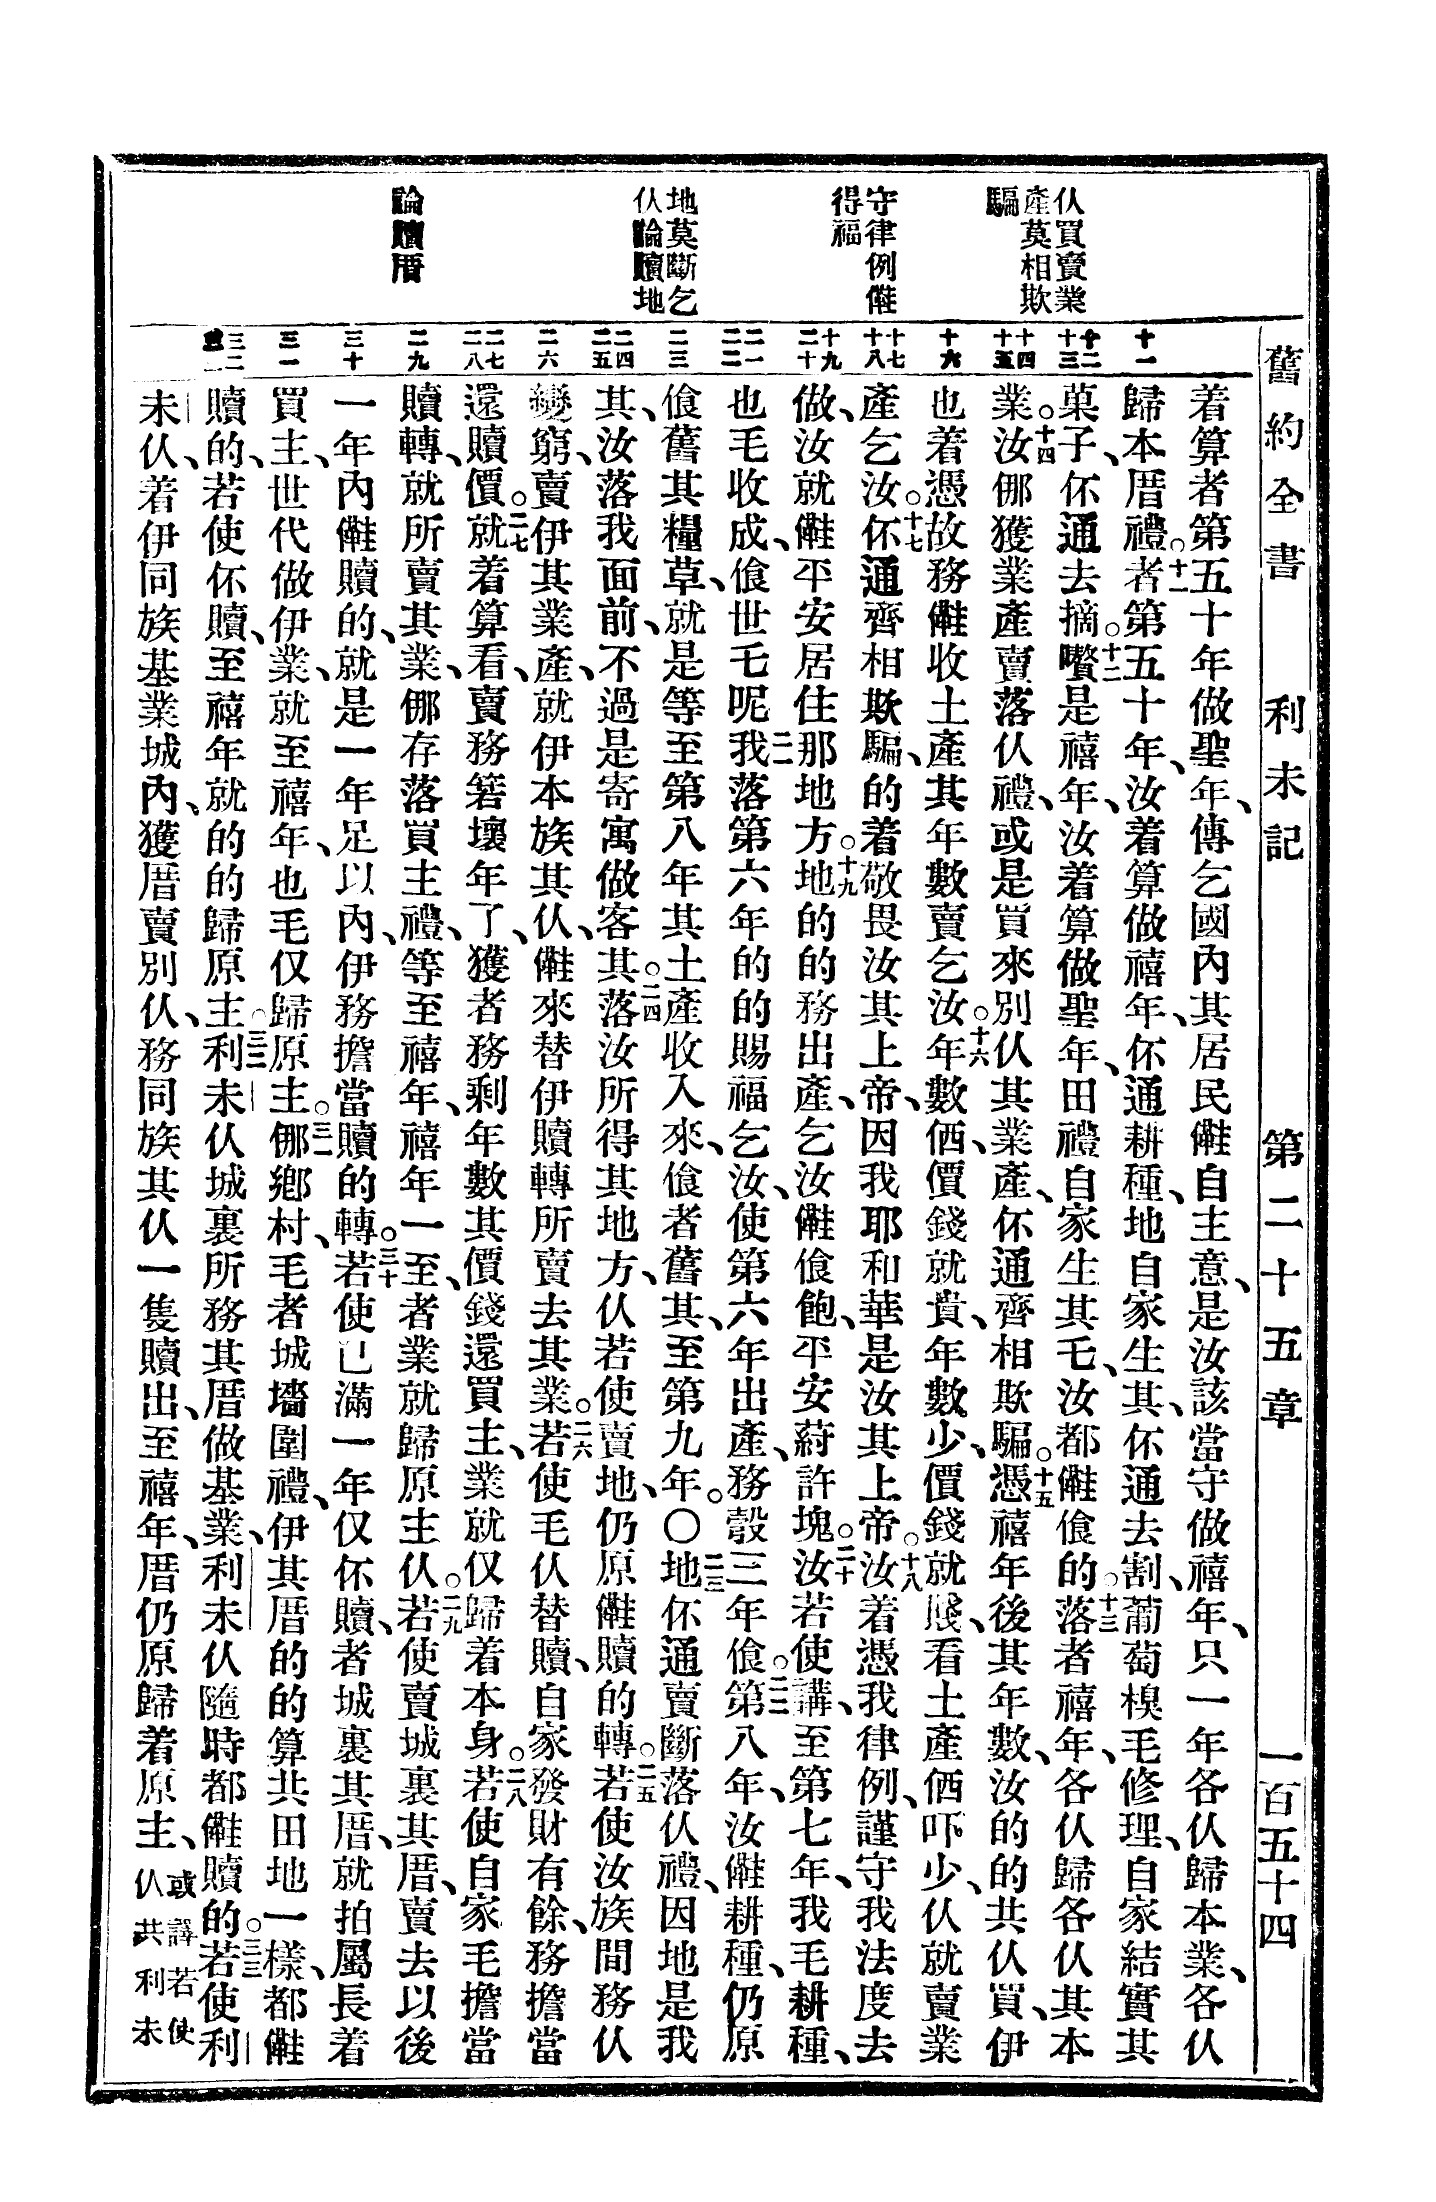 舊約全書　利未記　第二十五章　一百五十四
仈買賣業
產莫相欺
騙
守律例
得福
地莫斷乞
仈論贖地
論贖厝
十一
十二
十三
十四
十五
十六
十七
十八
十九
二十
二一
二二
二三
二四
二五
二六
二七
二八
二九
三十
三一
三二
三三
着算者第五十年做聖年、傳乞國內其居民自主意、是汝該當守做禧年、只一年各仈歸本業、各仈
歸本厝禮。十一者第五十年、汝着算做禧年、伓通耕種、地自家生其、伓通去割、葡萄模毛修理、自家結實其
菓子、伓通去摘。十二嚽是禧年、汝着算做聖年、田禮自家生其毛、汝都的。十三落者禧年、各仈歸各仈其本
業。十四汝㑚獲業產賣落仈禮、或是買來別仈其業產、伓通齊相欺騙。十五憑禧年後其年數、汝的的共仈買、伊
也着憑故務收土產其年數賣乞汝。十六年數価、價錢就貴、年數少、價錢就賤、看土產価吓少、仈就賣業
產乞汝。十七伓通齊相欺騙、的着敬畏汝其上帝、因我耶和華是汝其上帝。十八汝着憑我律例、謹守我法度去
做、汝就平安居住那地方。十九地的的務出產、乞汝飽、平安蒔許塊。二十汝若使講、至第七年、我毛耕種、
也毛收成、世乇呢。二一我落第六年的的賜福乞汝、使第六年出產、務彀三年。二二第八年、汝耕種、仍原
舊其糧草、就是等至第八年其土產收入來、者舊其、至第九年。〇二三地伓通賣斷落仈禮、因地是我
其、汝落我面前、不過是寄寓做客。二四其落汝所得其地方、仈若使賣地、仍原贖的轉。二五若使汝族間務仈
變窮、賣伊其業產、就伊本族其仈、來替伊贖轉所賣去其業。二六若使毛仈替贖、自家發財有餘、務擔當
還贖價。二七就着算看、賣務筶壞年了、獲者務剩年數其價錢還買主、業就仅歸着本身。二八若使自家毛擔當
贖轉、就所賣其業、㑚存落買主禮、等至禧年、禧年一至、者業就歸原主。二九仈若使賣城裏其厝、賣去以後
一年內贖的、就是一年足以內、伊務擔當贖的轉。三十若使已滿一年仅伓贖、者城裏其厝、就拍屬長着
買主、世代做伊業、就至禧年、也毛仅歸原主。三一㑚鄉村、毛者城墻圍禮、伊其厝的的算共田地一樣、都
贖的、若使伓贖、至禧年就的的歸原主。三二利未仈城裏所務其厝做基業、利未仈隨時都贖的。三三若使利
未仈、着伊同族基業城內、獲厝賣別仈、務同族其仈一隻贖出、至禧年、厝仍原歸着原主、或譯若使
仈共利未